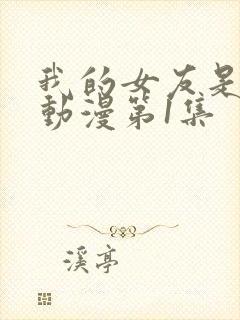 我的女友是
動漫第1集
溪亭